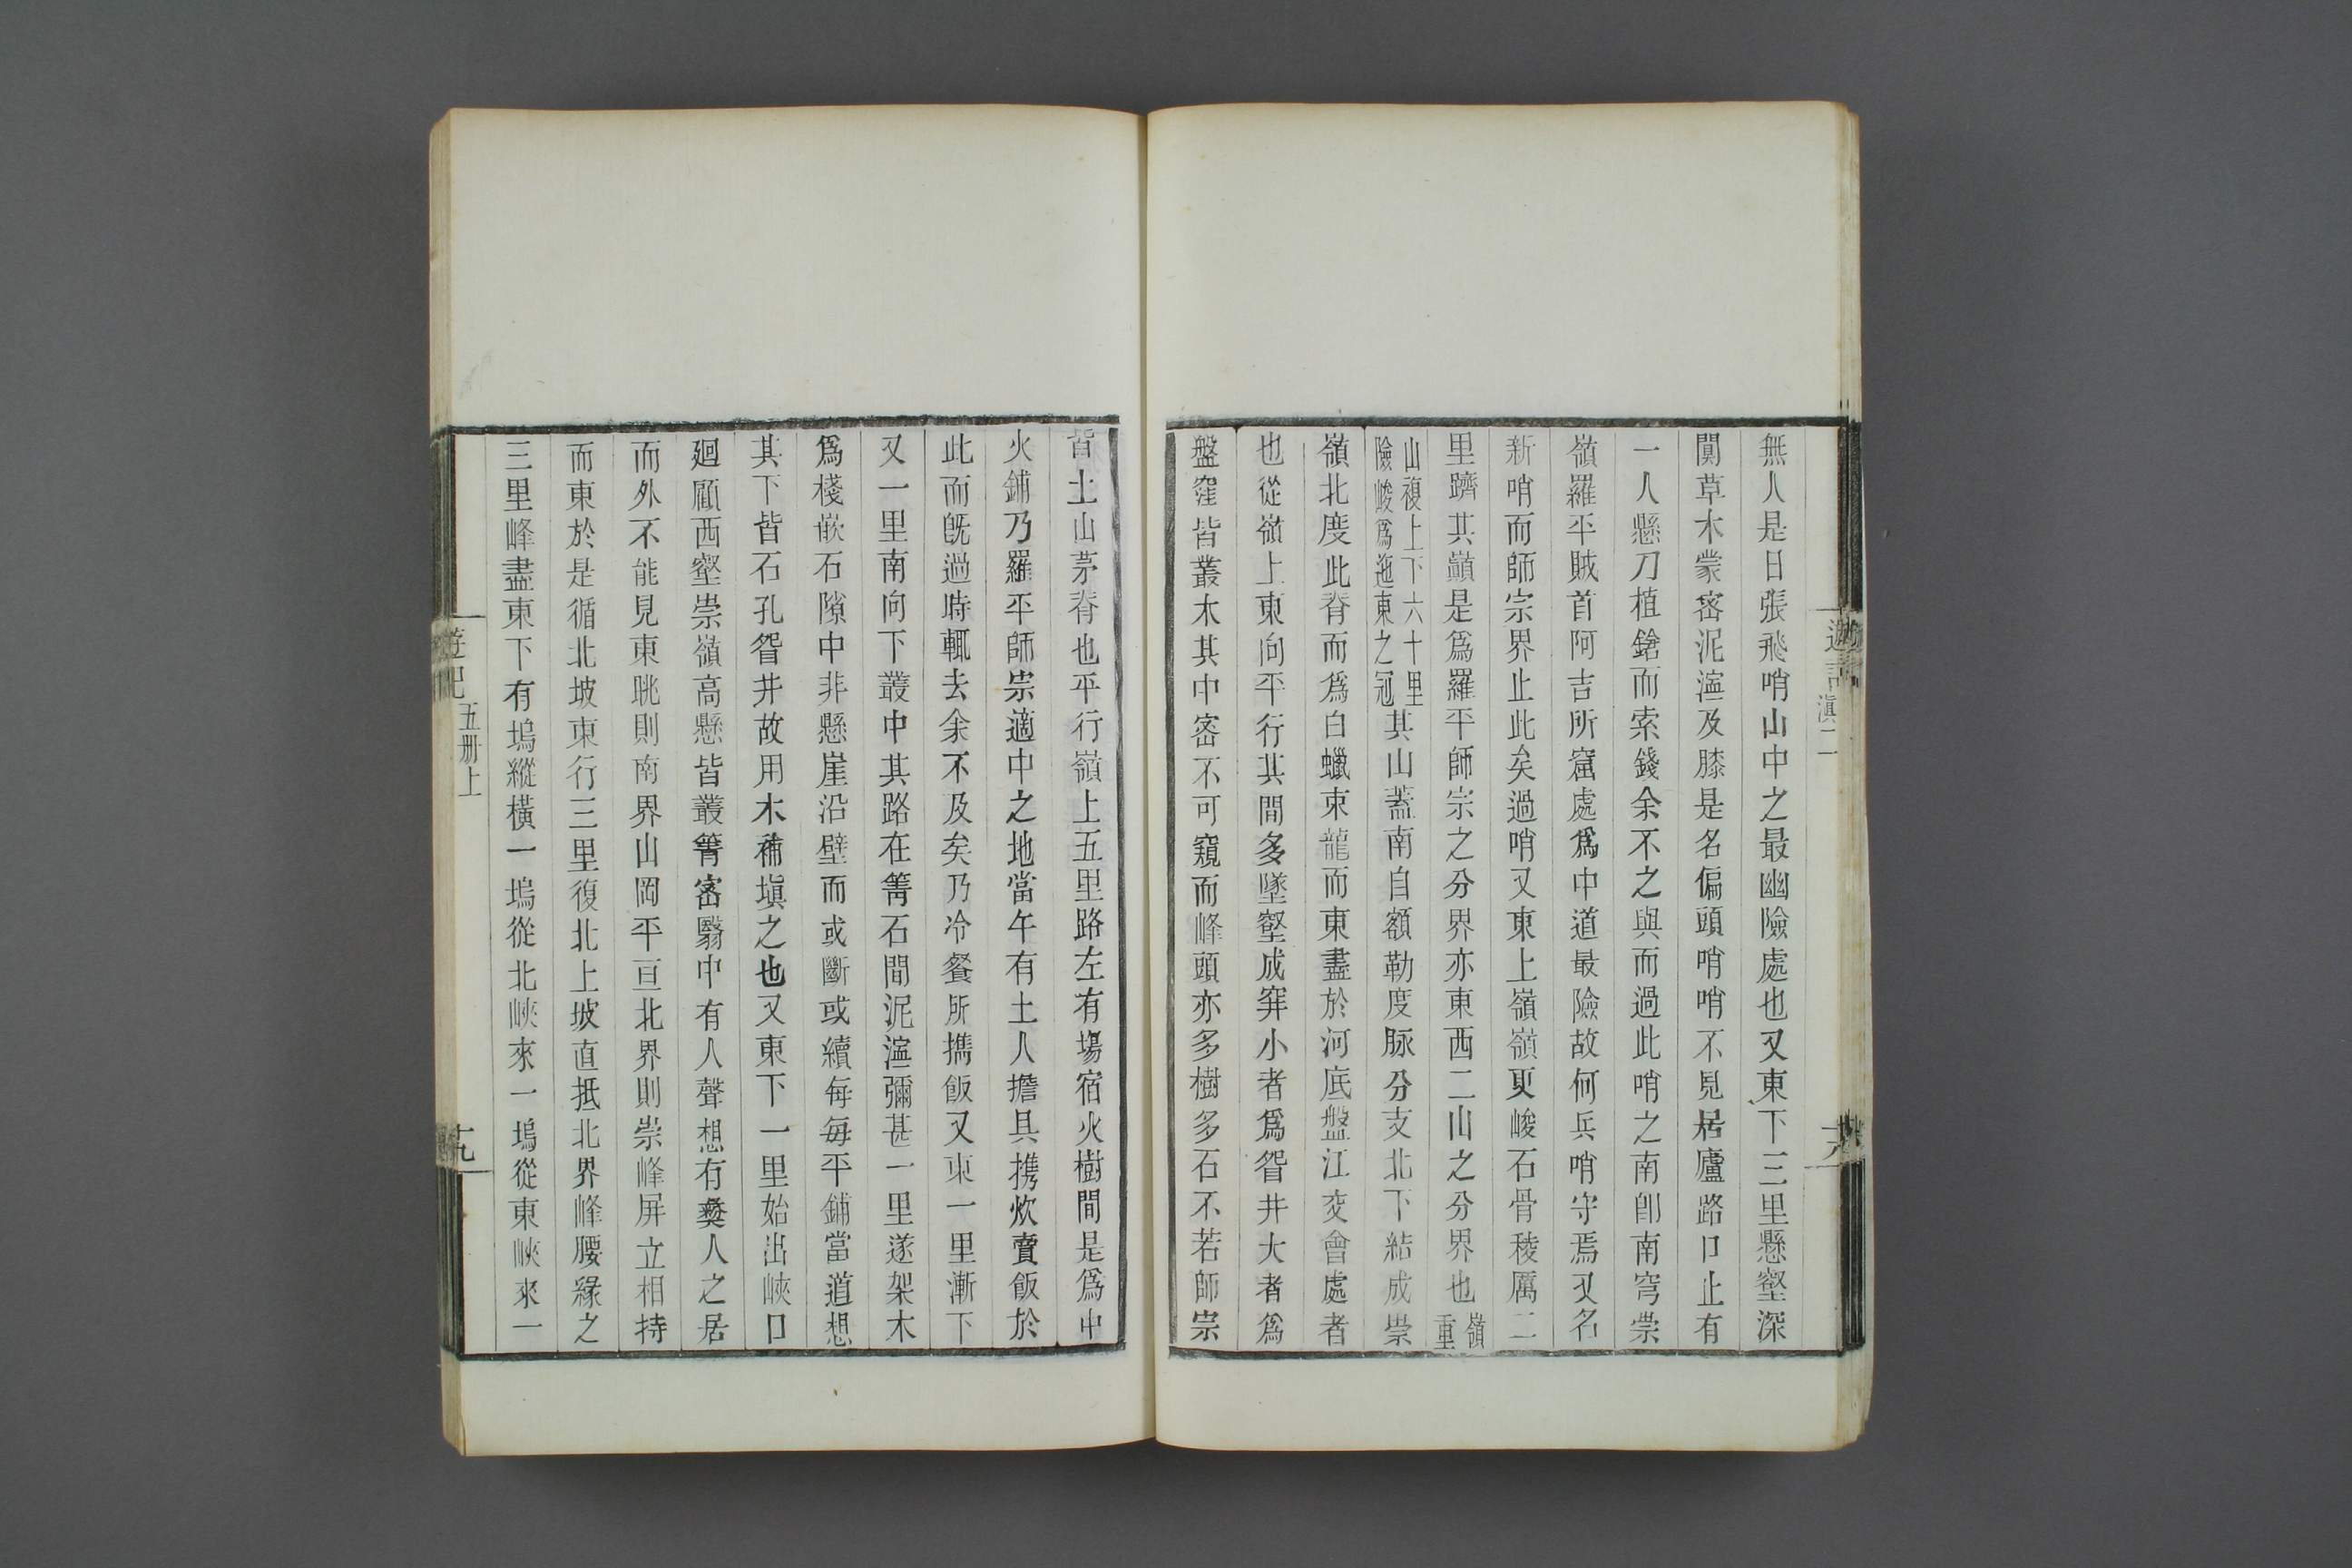 遊記 滇二
無人是日張飛哨山中之最幽險處也又東下三里懸壑深
闃草木蒙密泥濘及膝是名偏頭哨哨不見居廬路口止有
一人懸刀植鎗而索錢余不之與而過此哨之南卽南穹崇
嶺羅平賊首阿吉所窟處爲中道最險故何兵哨守焉又名
新哨而師宗界止此矣過哨又東上嶺嶺更峻石骨稜厲二
里躋其巔是爲羅平師宗之分界亦東西二山之分界也嶺重
山複上下六十里險峻爲迤東之冠其山蓋南自額勒度脉分支北下結成崇
嶺北度此脊而爲白蠟東龍而東盡於河底盤江交會處者
也從嶺上東向平行其間多墜壑成穽小者爲眢井大者爲
盤窪皆叢木其中密不可窺而峰頭亦多樹多石不若師宗
皆土山茅脊也平行嶺上五里路左有塲宿火樹間是爲中
火鋪乃羅平師宗適中之地當午有土人擔具携炊賣飯於
此而旣過時輒去余不及矣乃冷餐所擕飯又東一里漸下
又一里南向下叢中其路在箐石間泥濘彌甚一里遂架木
爲棧嵌石隙中非懸崖沿壁而或斷或續每每平鋪當道想
其下皆石孔眢井故用木補塡之也又東下一里始出峽口
廻顧西壑崇嶺高懸皆叢箐密翳中有人聲想有彝人之居
而外不能見東眺則南界山岡平亘北界則崇峰屏立相持
而東於是循北坡東行三里復北上坡直抵北界峰腰緣之
三里峰盡東下有塢縱橫一塢從北峽來一塢從東峽來一
遊記 五册上
十九